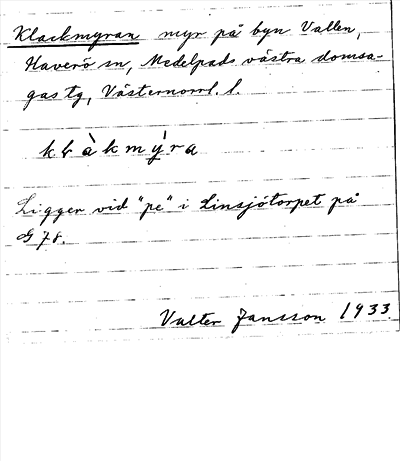 Klackmyran myr på byn Vallen,
Haverö sn, Medelpads västra domsa-
gas tg, Västernorrl. l.
klàkmýra
Ligger vid "pe" i Linsjötorpet på
G 78.
Valter Jansson 1933.